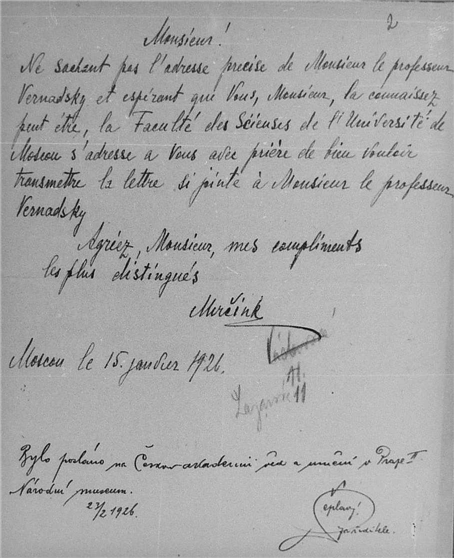 2
Monsieur!
Ne sachant pas l'adresse precise de Monsieur le professeur
Vernadsky et espérant que Vous, Monsieur, la connaissez
peut être, la Faculté des Sciences de l'Université de
Moscou s'adresse a Vous avec prière de bien vouloir
transmettre la lettre si jointe à Monsieur le professeur
Vernadsky
Agréez, Monsieur, mes compliments
les plus distingués
Mirčink
Moscou le 15. janvier 1926.
11
Bylo posláno na Českou akademii věd a umění v Praze II
Národní museum.
23/2 1926.